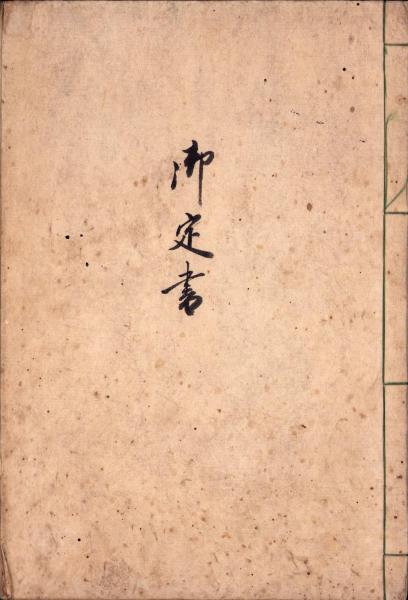 御定書